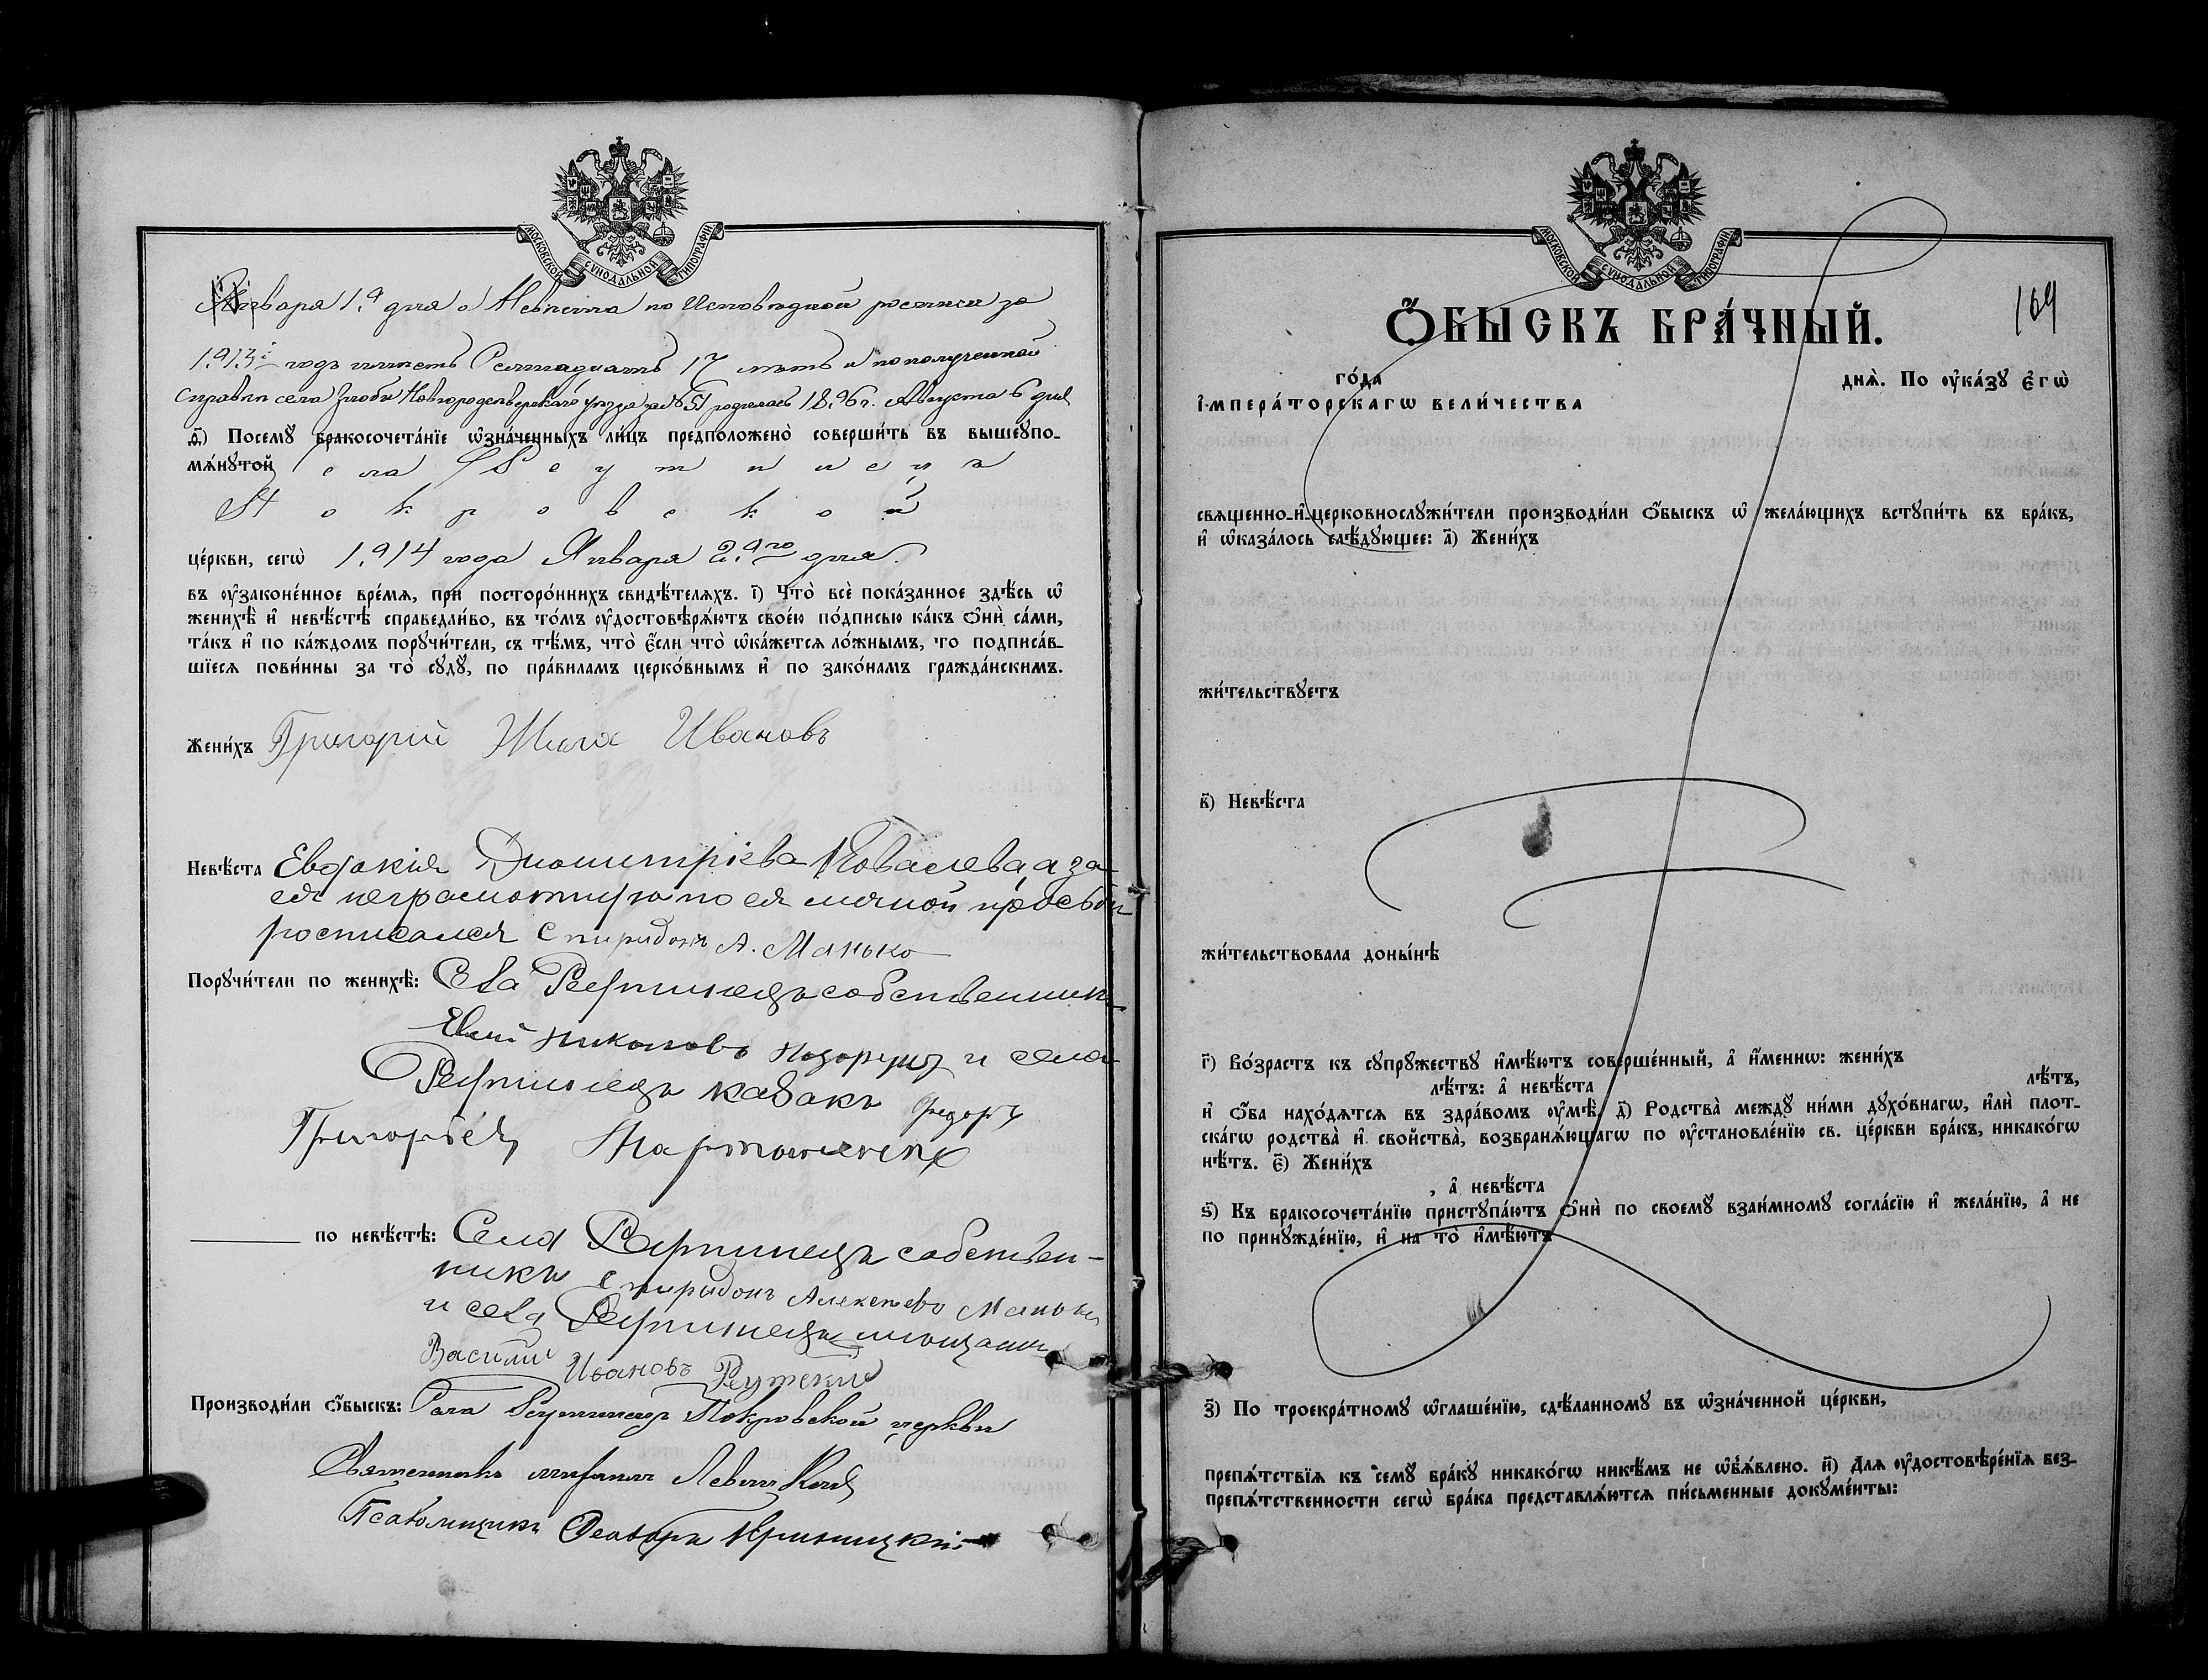 МОСКОВСКОЙ СѴНОДАЛЬНОЙ ТИПОГРАФІИ
Января 1.9 дня а Невѣста по Исповѣдной росписи за
1913й годъ имѣетъ Семнадцать 17 лѣтъ и по полученной
справки села Злобы Новгородсѣверскаго уѣзда за № 51 родилась 1896 г. Августа 6 дня
ѳ҃) Посемꙋ̀ бракосочета́нїе ѡ҆зна́ченныхъ ли́цъ предположенѡ̀ соверши́ть въ вышеꙋпо-
мѧ́нꙋтой села Реутинецъ
Покровской
це́ркви, сегѡ̀ 1.914 года Января 2.9го дня.
въ ᲂу҆зако́ненное вре́мѧ, при посторо́ннихъ свидѣ́телѧхъ. і҃) Что̀ всѐ пока́занное здѣ́сь ѡ҆
женихѣ̀ и҆ невѣ́стѣ справедли́во, въ то́мъ ᲂу҆достовѣрѧ́ютъ свое́ю по́дписью ка́къ ѻ҆нѝ са́ми,
та́къ и҆ по ка́ждомъ порꙋчи́тели, съ тѣ́мъ, что̀ є҆́сли что̀ ѡ҆ка́жетсѧ ло́жнымъ, то подписа́в-
шїесѧ пови́нны за то̀ сꙋдꙋ̀, по пра́виламъ церко́внымъ и҆ по зако́намъ гражда́нскимъ.
Жени́хъ Григорій Жила Ивановъ
Невѣ́ста Евдокія Диомитріева Ковалева, а за
ея неграмотную по ея личной прозьби
росписался Спиридонъ А. Манько
Порꙋчи́тели по женихѣ̀: Села Реутинецъ собственникъ
Николаевъ и села
Реутинецъ казакъ Федоръ
Григорьев
по невѣ́стѣ: Села Реутинецъ собствен-
никъ Спиридонъ Алексѣевъ Манько
и села Реутинецъ мещанинъ
Василий Ивановъ Реутский
Производи́ли ѻ҆́быскъ: Села Реутинецъ Покровской церкви
Священникъ Левицкій
Псаломщикъ Феодоръ Криницкій
МОСКОВСКОЙ СѴНОДАЛЬНОЙ ТИПОГРАФІИ
169
Ѻ҆́БЫСКЪ БРА́ЧНЫЙ.
го́да днѧ̀. По ᲂу҆ка́зꙋ Є҆гѡ̀
І҆мпера́торскагѡ вели́чества
свѧщенно-и҆-церковнослꙋжи́тели производи́ли ѻ҆́быскъ ѡ҆ жела́ющихъ встꙋпи́ть въ бра́къ,
и҆ ѡ҆каза́лось слѣ́дꙋющее: а҃) Жени́хъ
жи́тельствꙋетъ
в҃) Невѣ́ста
жи́тельствовала доны́нѣ
г҃) Во́зрастъ къ сꙋпрꙋ́жествꙋ и҆мѣ́ютъ соверше́нный, а҆ и҆́меннѡ: жени́хъ
лѣ́тъ: а҆ невѣ́ста лѣ́тъ,
и҆ ѻ҆́ба нахо́дѧтсѧ въ здра́вомъ ᲂу҆мѣ̀. д҃) Родства̀ междꙋ̀ ни́ми дꙋхо́внагѡ, и҆лѝ плот-
ска́гѡ родства̀ и҆ свойства̀, возбранѧ́ющагѡ по ᲂу҆становле́нїю св. це́ркви бра́къ, никако́гѡ
нѣ́тъ. є҃) Жени́хъ
, а҆ невѣ́ста
ѕ҃) Къ бракосочета́нїю пристꙋпа́ютъ ѻ҆нѝ по своемꙋ̀ взаи́мномꙋ согла́сїю и҆ жела́нїю, а҆ не
по принꙋжде́нїю, и҆ на то̀ и҆мѣ́ютъ
з҃) По троекра́тномꙋ ѡ҆глаше́нїю, сдѣ́ланномꙋ въ ѡ҆зна́ченной це́ркви,
препѧ́тствїѧ къ семꙋ̀ бра́кꙋ никако́гѡ никѣ́мъ не ѡ҆б̾ѧ́влено. и҃) Длѧ ᲂу҆достовѣре́нїѧ без-
препѧ́тственности сегѡ̀ бра́ка представлѧ́ютсѧ пи́сьменные докꙋме́нты: